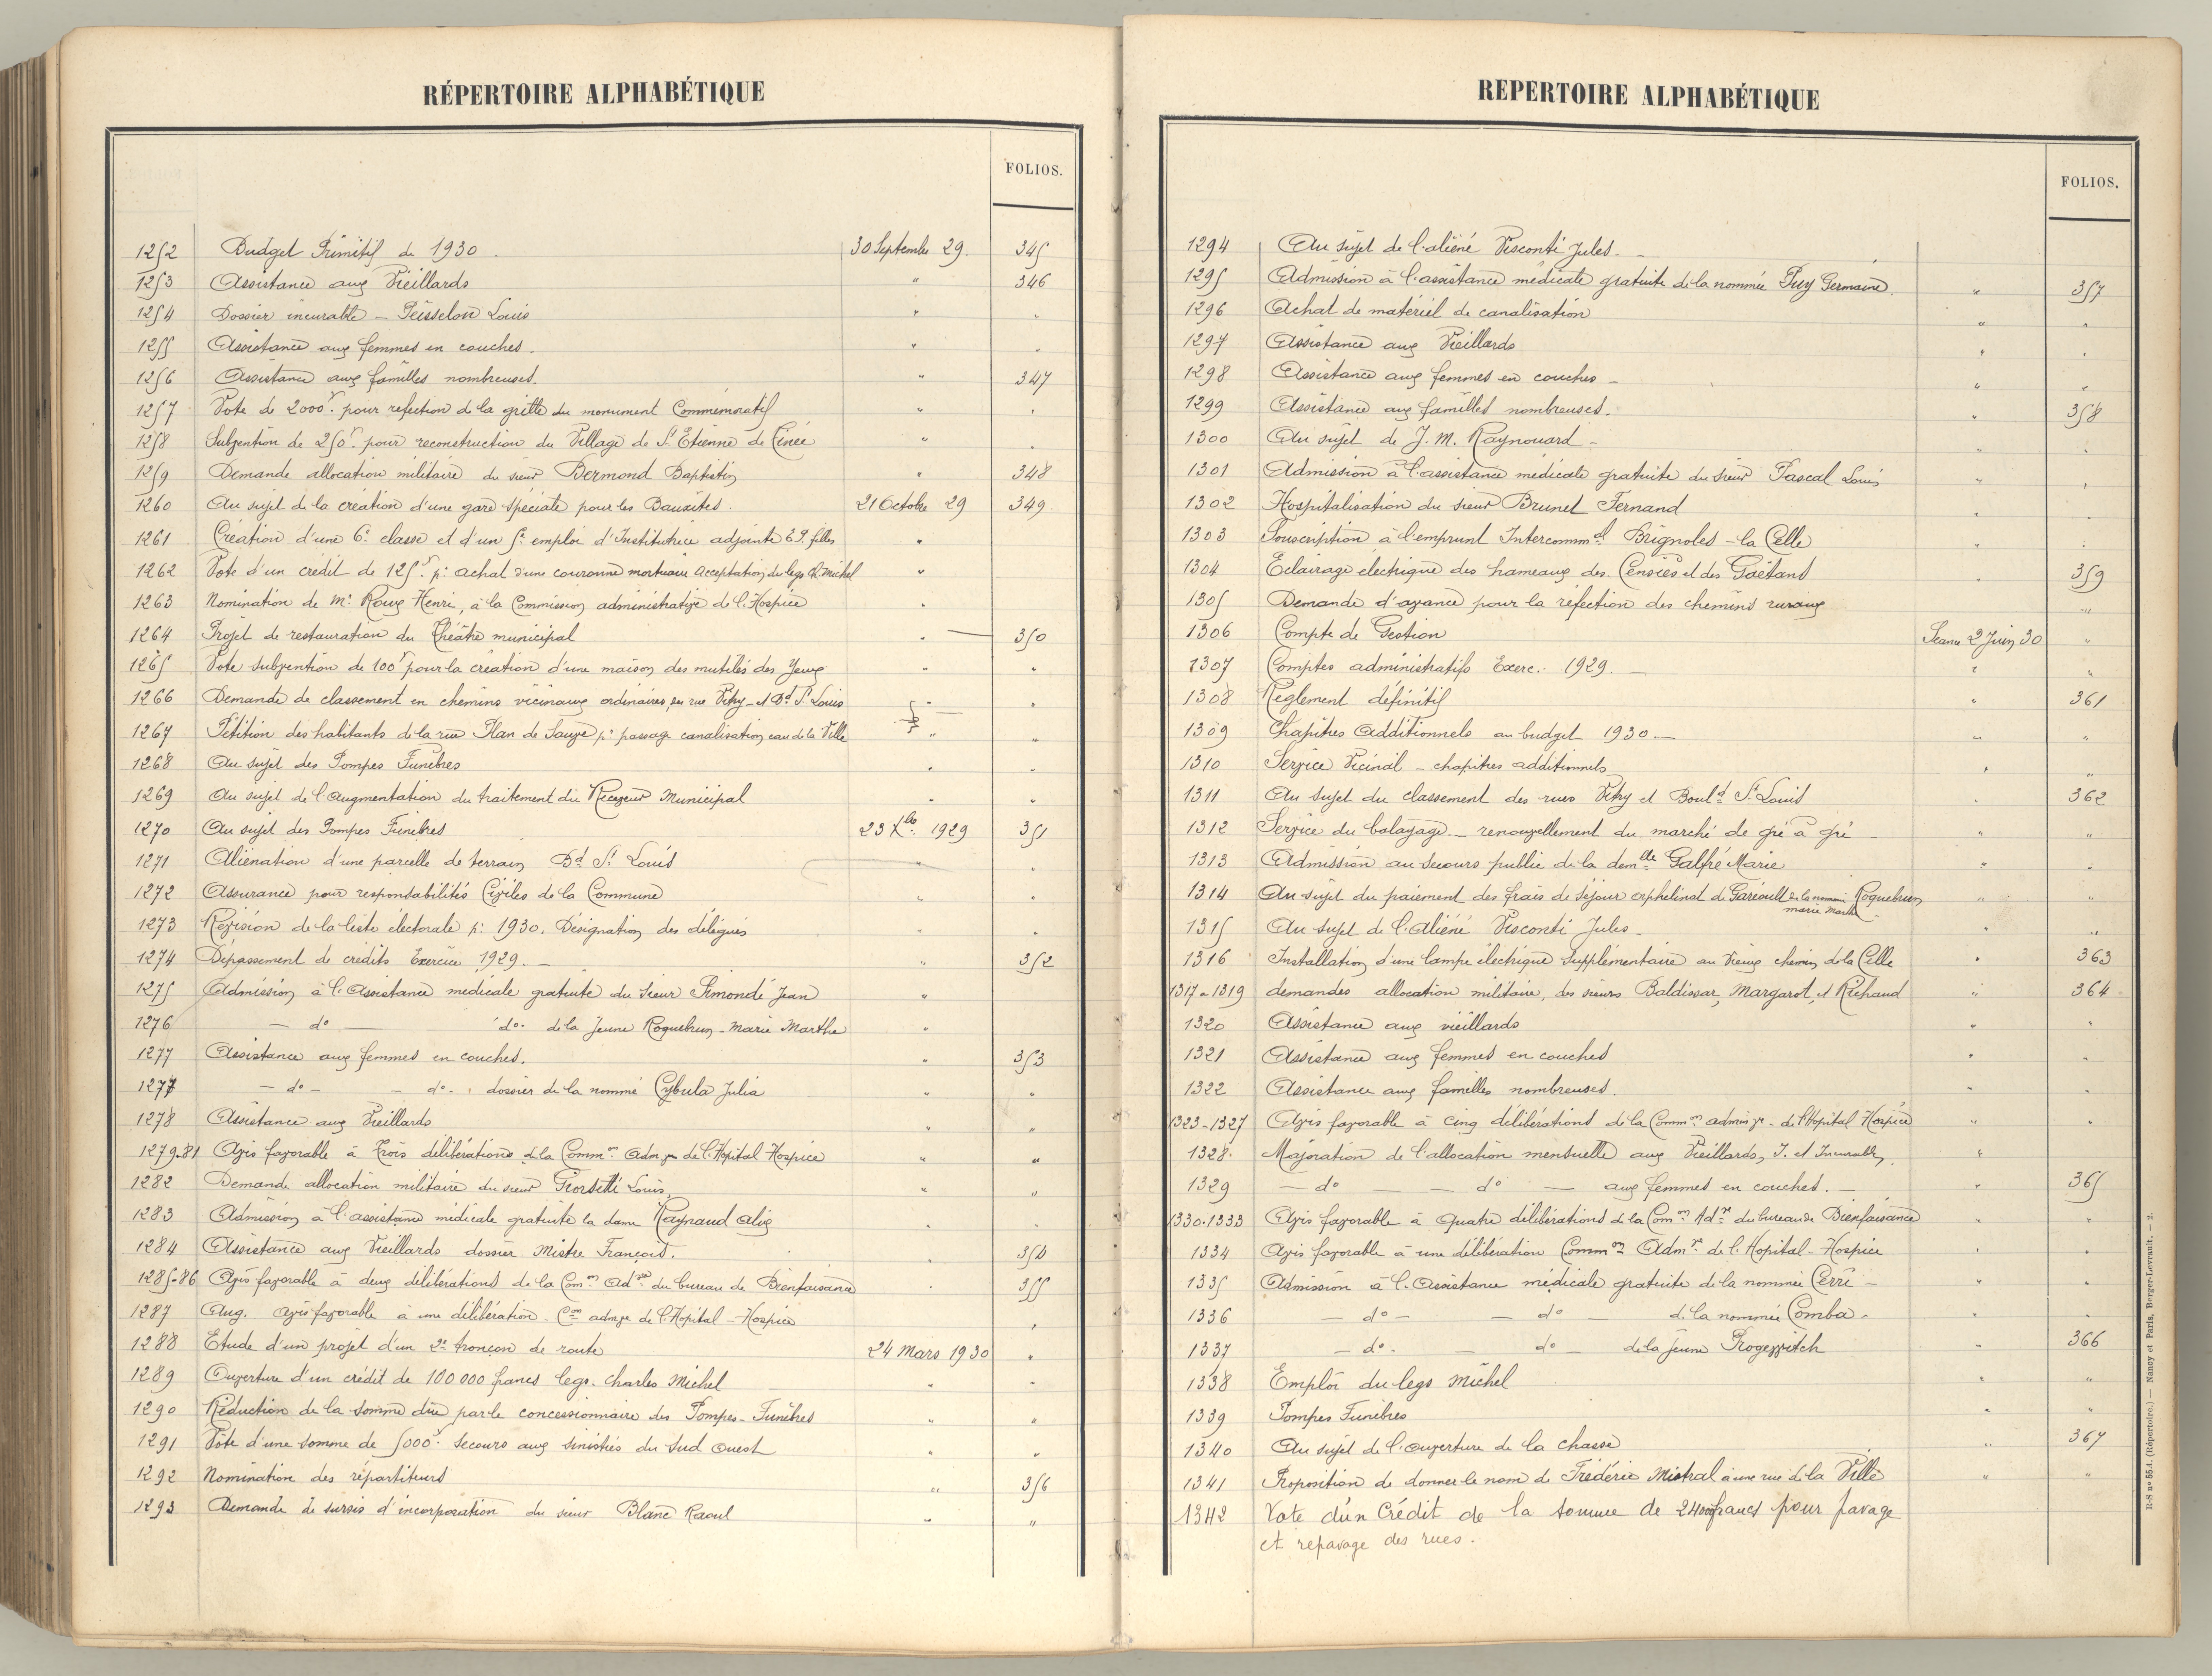 RÉPERTOIRE ALPHABÉTIQUE
FOLIOS.
1252 Budget Primitif de 1930. 30 Septembre 29. 345
1253 Assistance aux Vieillards " 346
1254 Dossier incurable – Peisselon Louis " "
1255 Assistance aux femmes en couches. " "
1256 Assistance aux familles nombreuses. " 347
1257 Vote de 2000f. pour refection de la grille du monument Commémoratif " "
1258 Subvention de 250f. pour reconstruction du Village de St Etienne de Tinée " "
1259 Demande allocation militaire du sieur Bermond Baptistin " 348
1260 Au sujet de la création d'une gare spéciale pour les Bauxites. 21 Octobre 29 349
1261 Création d'une 6e classe et d'un 5e emploi d'Institutrice adjointe E.P. filles "
1262 Vote d'un crédit de 125f. pr achat d'une couronne mortuaire Acceptation du legs Ch. Michel "
1263 Nomination de Mr Roux Henri, à la Commission administrative de l'Hospice "
1264 Projet de restauration du Théâtre municipal " 350
1265 Vote subvention de 100f pour la création d'une maison des mutilés des Yeux " "
1266 Demande de classement en chemins vicinaux ordinaires, des rue Vitry et Bd St Louis " "
1267 Pétition des habitants de la rue Plan de Sauze pr passage canalisation eau de la Ville " "
1268 Au sujet des Pompes Funèbres " "
1269 Au sujet de l'Augmentation du traitement du Receveur Municipal " "
1270 Au sujet des Pompes Funèbres 23 Xbre 1929 351
1271 Aliénation d'une parcelle de terrain Bd St Louis " "
1272 Assurance pour responsabilités Civiles de la Commune " "
1273 Révision de la liste électorale pr 1930. Désignation des délégués " "
1274 Dépassement de crédits Exercice 1929. – " 352
1275 Admission à l'Assistance médicale gratuite du sieur Simondi Jean "
1276 – do – do. de la Jeune Roquebrun Marie Marthe "
1277 Assistance aux femmes en couches. " 353
1277 – do – – do – dossier de la nommé Cybula Julia " "
1278 Assistance aux Vieillards " "
1279-81 Avis favorable à Trois délibérations de la Common Admve de l'Hopital Hospice " "
1282 Demande allocation militaire du sieur Louis " "
1283 Admission à l'assistance médicale gratuite la dame Raynaud Alix " "
1284 Assistance aux Vieillards dossier Mistre François. " 354
1285-86 Avis favorable à deux délibérations de la Comon Adve du bureau de Bienfaisance " 355
1287 Aug. Avis favorable à une délibération Con admve de l'Hopital – Hospice "
1288 Etude d'un projet d'un 2e tronçon de route 24 Mars 1930 "
1289 Ouverture d'un crédit de 100 000 francs legs. Charles Michel " "
1290 Réduction de la somme due par le concessionnaire des Pompes-Funèbres " "
1291 Vote d'une somme de 5000f. Secours aux sinistrés du Sud Ouest " "
1292 Nomination des répartiteurs " 356
1293 Demande de sursis d'incorporation du sieur Blanc Raoul " "
REPERTOIRE ALPHABÉTIQUE
FOLIOS.
1294 Au sujet de l'aliéné Visconti Jules. –
1295 Admission à l'assistance médicale gratuite de la nommée Puy Germaine. " 357
1296 Achat de matériel de canalisation " "
1297 Assistance aux Vieillards " "
1298 Assistance aux femmes en couches – " "
1299 Assistance aux familles nombreuses. " 358
1300 Au sujet de J. M. Raynouard – " "
1301 Admission à l'assistance médicale gratuite du sieur Pascal Louis " "
1302 Hospitalisation du sieur Brunel Fernand " "
1303 Souscription à l'emprunt Intercommal Brignoles – la Celle " "
1304 Eclairage électrique des hameaux des Censiès et des Gaëtans " 359
1305 Demande d'avance pour la réfection des chemins ruraux "
1306 Compte de Gestion Séance 2 Juin 30 "
1307 Comptes administratifs Exerc. 1929. – " "
1308 Règlement définitif " 361
1309 Chapitres Additionnels au budget 1930. – " "
1310 Service Vicinal – chapitres additionnels " "
1311 Au sujet du classement des rues Vitry et Bould St Louis " 362
1312 Service du balayage. – renouvellement du marché de gré à gré – " "
1313 Admission au secours public de la demlle Galfré Marie " "
1314 Au sujet du paiement des frais de séjour orphelinat de Garéoult de la nommée Roquebrun " "
marie Marthe
1315 Au sujet de l'Aliéné Visconti Jules – " "
1316 Installation d'une lampe électrique supplémentaire au Vieux chemin de la Celle " 363
1317 a 1319 demandes allocation militaire, des sieurs Baldissar, Margarot, et Richaud " 364
1320 Assistance aux vieillards " "
1321 Assistance aux femmes en couches " "
1322 Assistance aux familles nombreuses. " "
1323-1327 Avis favorable à cinq délibérations de la Common adminve – de l'Hopital Hospice " "
1328. Majoration de l'allocation mensuelle aux Vieillards, I. et Incurables "
1329 – do – – do – aux femmes en couches. – " 365
1330.1333 Avis favorable à quatre délibérations de la Comon Adve du bureau de Bienfaisance " "
1334 Avis favorable à une délibération Common Admve de l'Hopital – Hospice " "
1335 Admission à l'Assistance médicale gratuite de la nommée Cerri – " "
1336 – do – – do – de la nommée Comba – " "
1337 – do. – do – de la jeune Rogewitch " 366
1338 Emploi du legs Michel " "
1339 Pompes Funèbres " "
1340 Au sujet de l'ouverture de la chasse " 367
1341 Proposition de donner le nom de Frédéric Mistral à une rue de la Ville " "
1342 Vote d'un Crédit de la somme de 24000 francs pour pavage
et repavage des rues.
R-S no 554. (Répertoire.) — Nancy et Paris, Berger-Levrault. — 2.